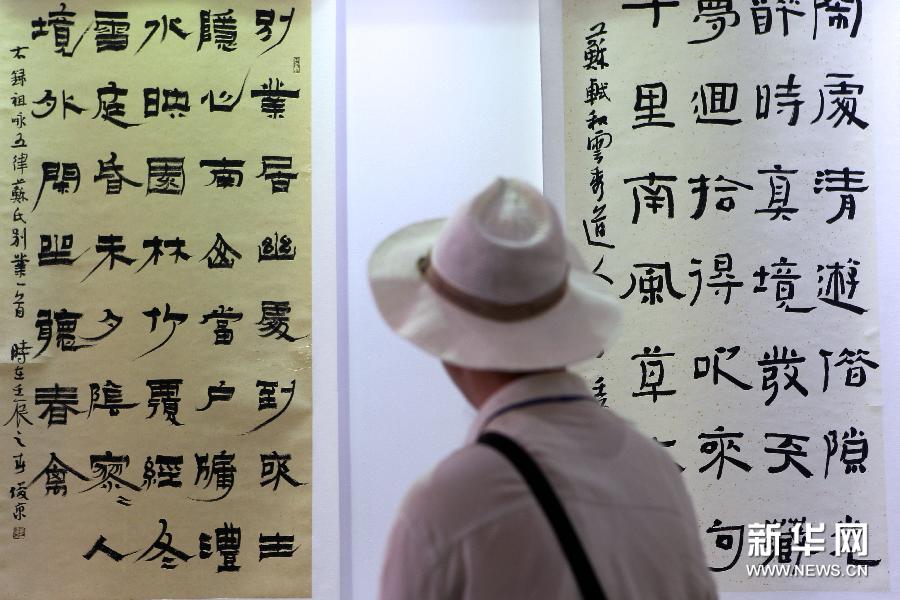 别業居幽處到來生
隱心南山當户牖灃
水映園林竹覆經冬
雪庭昏未夕陰寥〻人
境外閒坐聽春禽
右錄祖咏五律蘇氏别業一首 時在壬辰之春
鬧處清遊借隙
醉時真境發天
夢迴拾得吹來句
里南風草
蘇軾和雲秀道人
新华网
WWW.NEWS.CN